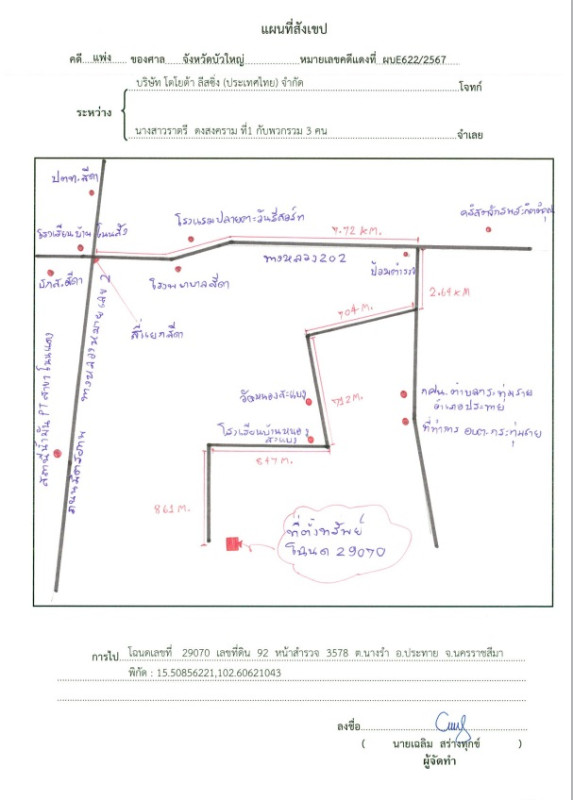 แผนที่สังเขป
คดี แพ่ง ของศาล จังหวัดบัวใหญ่ หมายเลขคดีแดงที่ ผบE622/2567
บริษัท โตโยต้า ลีสซิ่ง (ประเทศไทย) จำกัด โจทก์
ระหว่าง
นางสาวราตรี ดงสงคราม ที่1 กับพวกรวม 3 คน จำเลย
ปตท.สีดา
โรงเรียนบ้านโนนสั้ง
โรงแรมปลายตะวันรีสอร์ท
9.72 KM.
ทางหลวง 202
ป้อมตำรวจ
บขส.สีดา
โรงพยาบาลสีดา
2.69 KM
สี่แยกสีดา
ทางหลวงหมายเลข 2
ถนนมิตรภาพ
สถานีน้ำมัน PT สาขาโนนแดง
704 M.
วัดหนองสะแบง
712 M.
กศน.ตำบลกระทุ่มราย
อำเภอประทาย
โรงเรียนบ้านหนองสะแบง
ที่ทำการ อบต.กระทุ่มราย
847 M.
861 M.
ที่ตั้งทรัพย์
โฉนด 29070
การไป โฉนดเลขที่ 29070 เลขที่ดิน 92 หน้าสำรวจ 3578 ต.นางรำ อ.ประทาย จ.นครราชสีมา
พิกัด : 15.50856221,102.60621043
ลงชื่อ
( นายเฉลิม สร่างทุกข์ )
ผู้จัดทำ